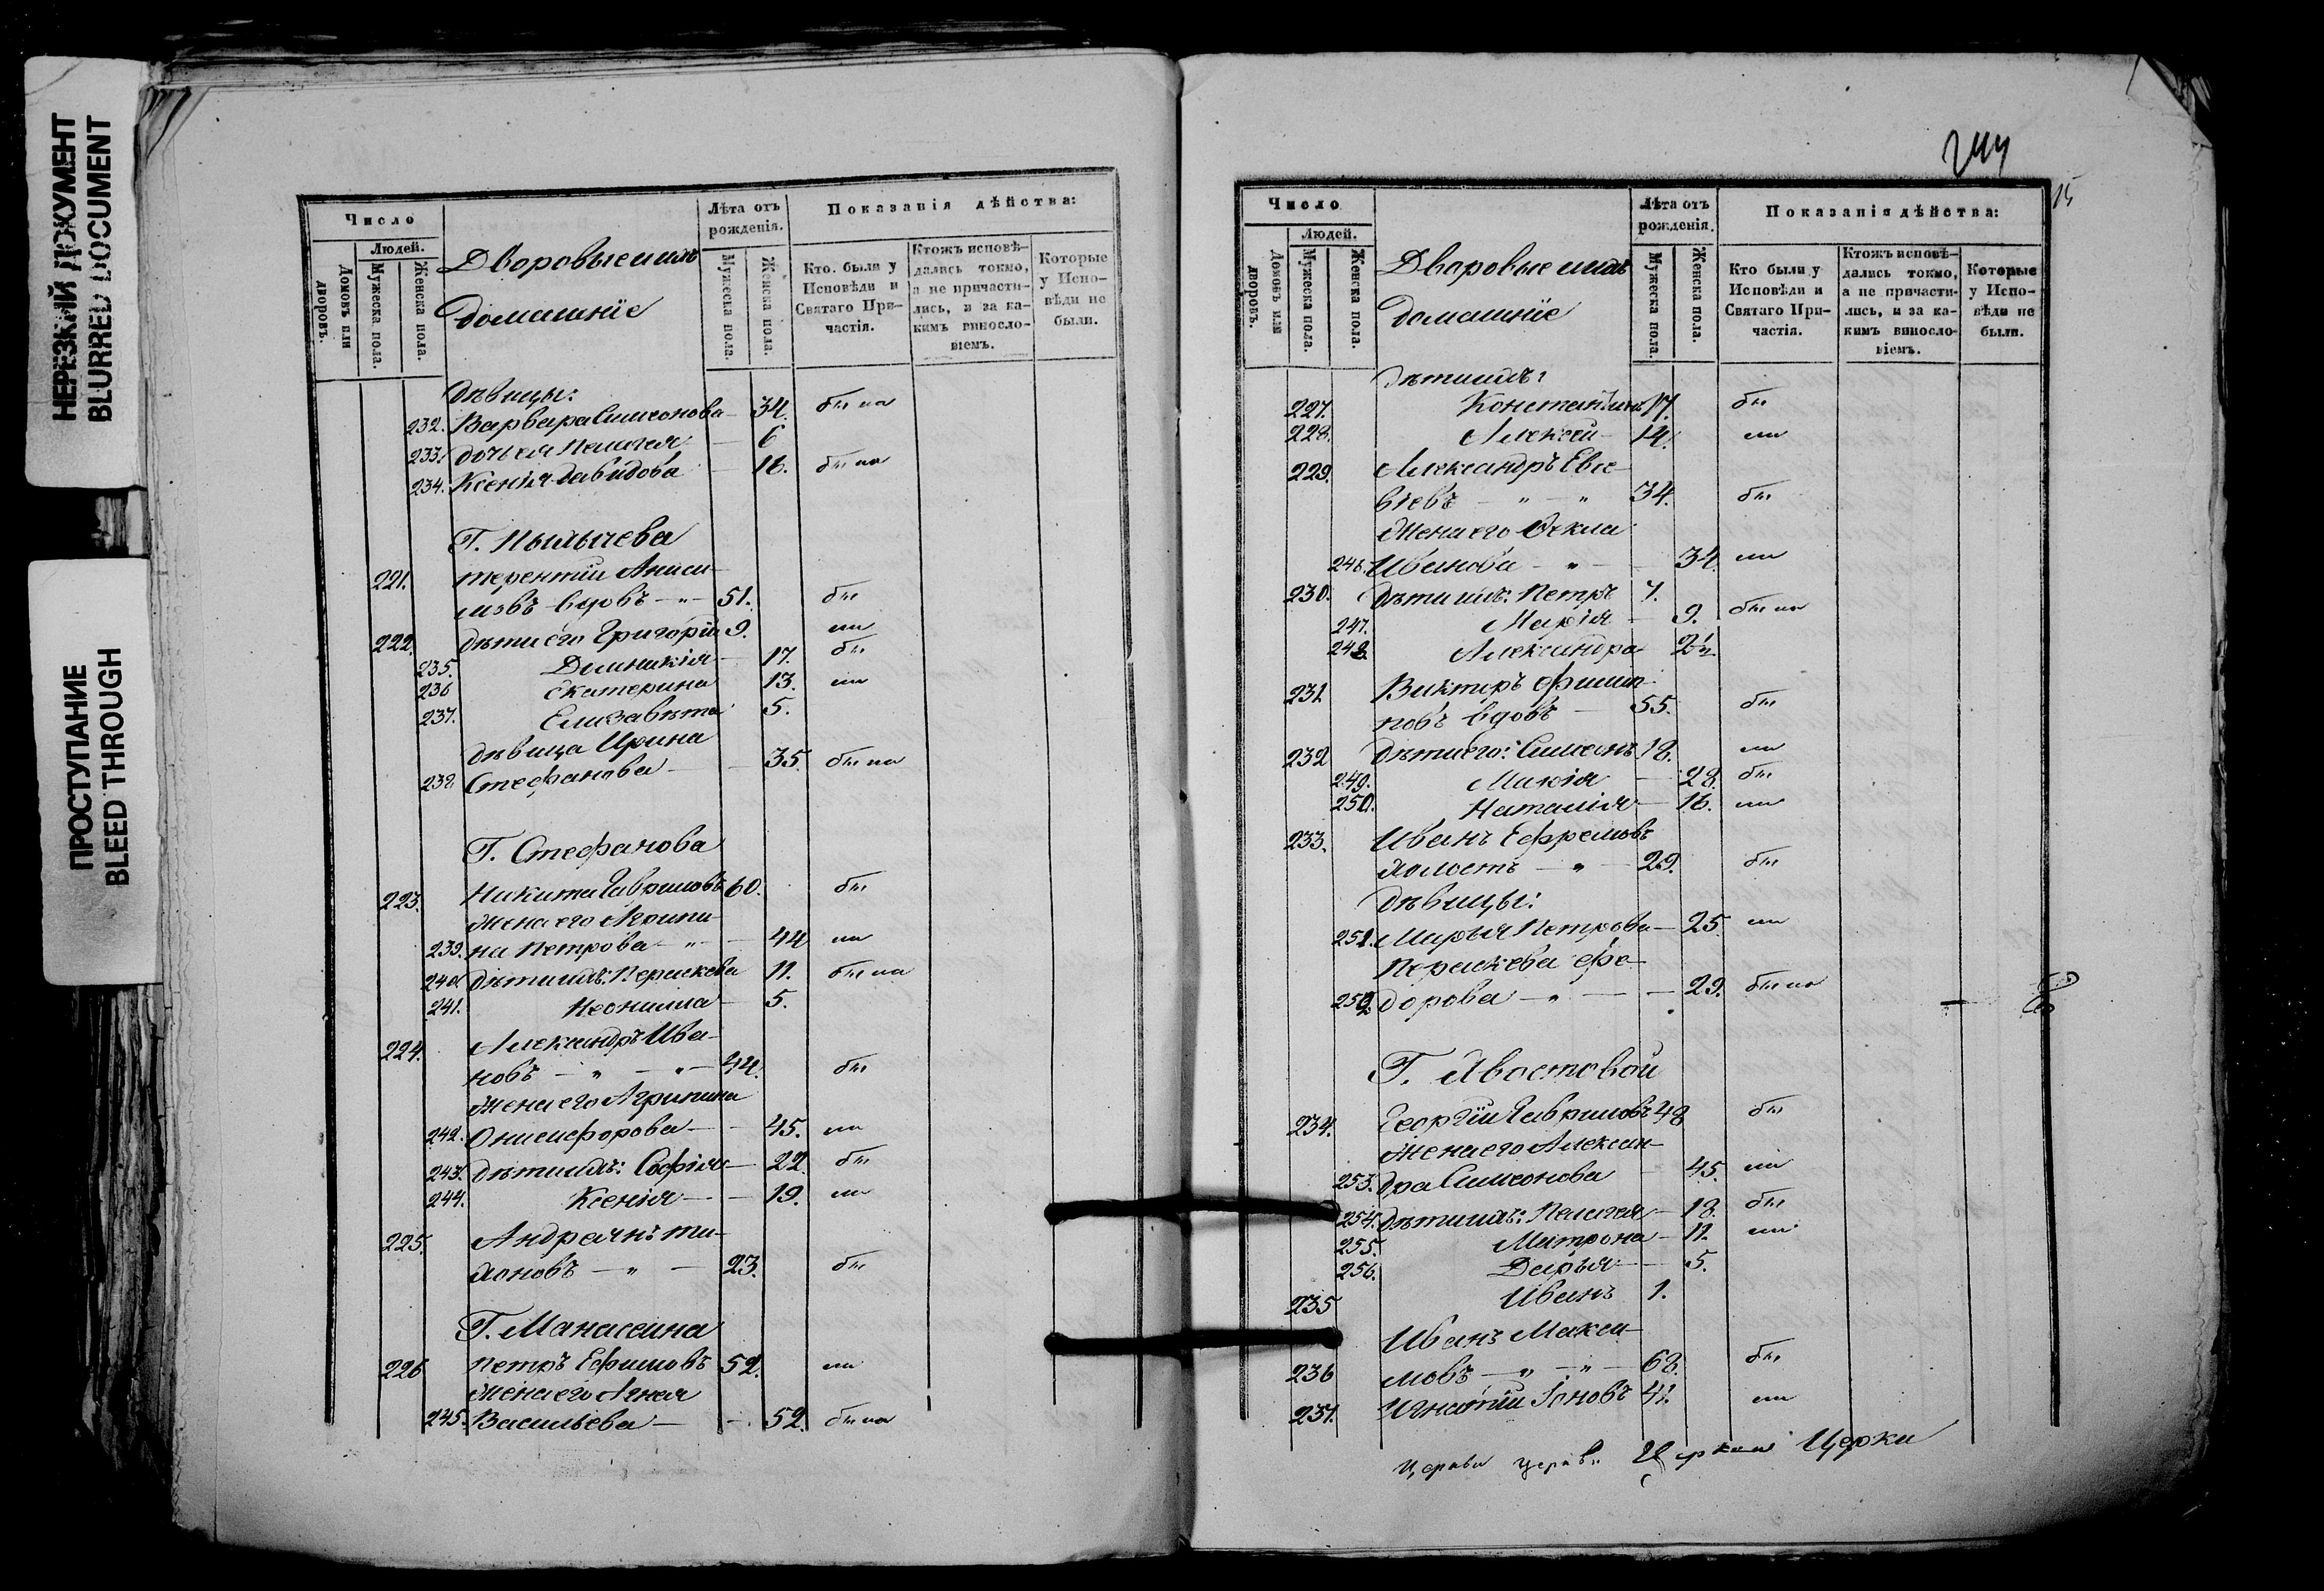 НЕРЕЗКИЙ ДОКУМЕНТ
BLURRED DOCUMENT
ПРОСТУПАНИЕ
BLEED THROUGH
Число
Людей.
Домовъ или дворовъ.
Мужеска пола.
Женска пола.
Дворовые и ихъ
домашніе
Лѣта отъ рожденія.
Мужеска пола.
Женска пола.
Показанія дѣйства:
Кто были у Исповѣди и Святаго Причастія.
Ктожъ исповѣдались токмо, а не причастились, и за какимъ винословіемъ.
Которые у Исповѣди не были.
Дѣвицы:
232. Варвара Симеонова — 34. была
233. дочь ея Пелагея — 6
234. Ксенія Давидова — 16. была
Г.
221. Терентій Аниси-
мовъ вдовъ — " — 51. бы
222. дѣти его Григорій 9. ли
235. Домникія — 17. бы
236 Екатерина 13. ли
237. Елизавѣта 5.
дѣвица Ирина
238. Стефанова — 35. была
Г. Стефанова
223. Никита Гавриловъ 60. бы
Жена его Агрипи-
239. на Петрова — " — 44 ли
240. дѣти ихъ: Параскева 11. была
241. Неонилла — 5.
224. Александръ Ива-
новъ — " — " — 44. бы
Жена его Агрипина
242. Онисифорова — 45. ли
243. дѣти ихъ: Софія — 22. бы
244. Ксенія — 19. ли
225. Андреянъ Ти-
хоновъ — " — 23. бы
Г. Манасеина
226 Петръ Ефимовъ 52. ли
Жена его Агнея
245. Васильева — 52. была
244
15
Число
Людей.
Домовъ или дворовъ.
Мужеска пола.
Женска пола.
Дворовые и ихъ
домашніе
Лѣта отъ рожденія.
Мужеска пола.
Женска пола.
Показанія дѣйства:
Кто были у Исповѣди и Святаго Причастія.
Ктожъ исповѣдались токмо, а не причастились, и за какимъ винословіемъ.
Которые у Исповѣди не были.
дѣти ихъ:
227. Константинъ 17. бы
228. Алексѣй 14. ли
229. Александръ Евсе-
віевъ — " — " 34. бы
Жена его Фекла
246. Иванова — " — 34. ли
230. Дѣти ихъ: Петръ 7.
247. Марія — 9. была
248. Александра 2½.
231. Викторъ Филип-
повъ вдовъ — 55. бы
232 дѣти его: Симеонъ 18. ли
249. Марія — 28. бы
250. Наталія — 16. ли
233. Иванъ Ефремовъ
холостъ — " — 29. бы
дѣвицы:
251. Марья Петрова — 25. ли
Параскева Фе-
252. дорова — " — — 29. была
Г. Хвостовой
234. Георгій Гавриловъ 48 бы
Жена его Алексан-
253. дра Симеонова 45. ли
254. дѣти ихъ: Пелагея — 18. бы
255. Матрона — 11. ли
256. Дарья — 5.
235 Иванъ 1.
Иванъ Макси-
236 мовъ — " — " — 68. бы
237. Игнатій Іоновъ 41. ли
Церкви